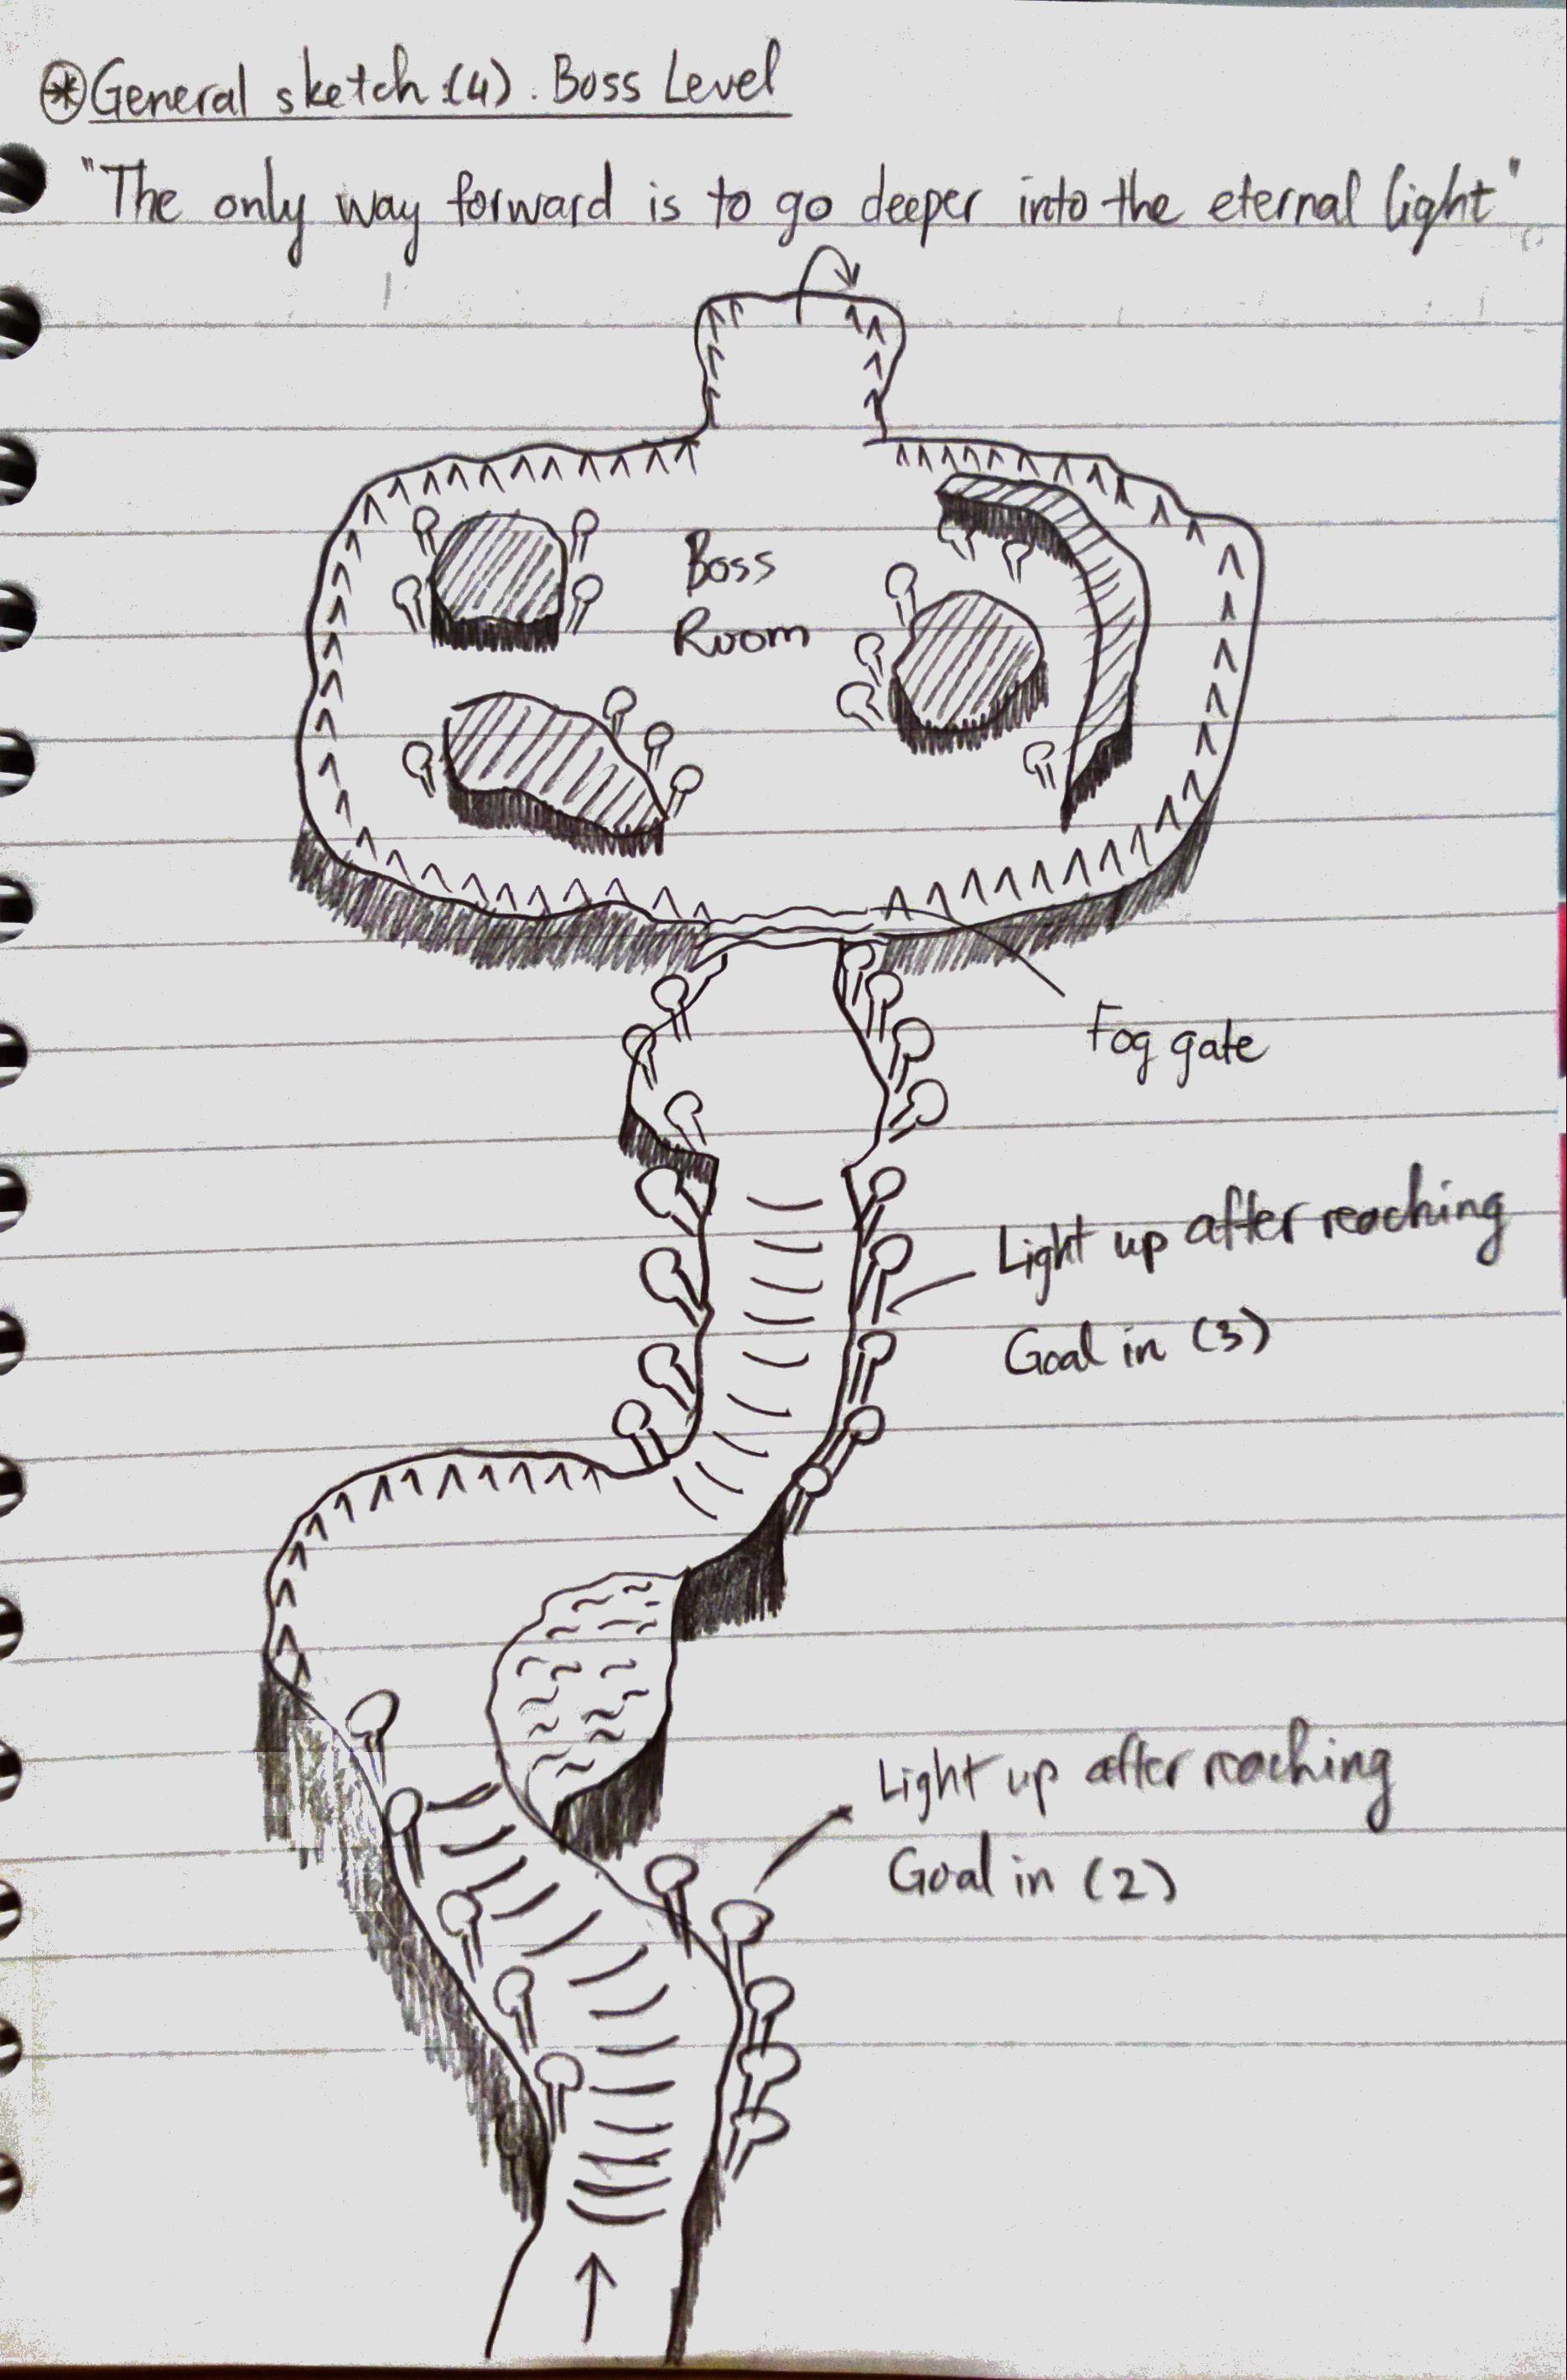 ⊛ General sketch:(4). Boss Level
"The only way forward is to go deeper into the eternal light"
Boss
Room
Fog gate
Light up after reaching
Goal in (3)
Light up after reaching
Goal in (2)